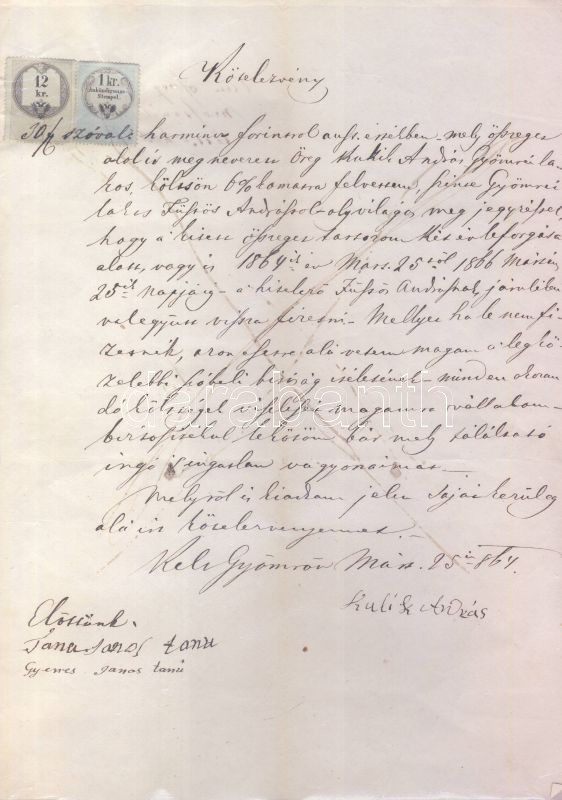 12
kr.
1 kr.
Ankündigungs
Stempel.
Kötelezvény
30 f szóval: harmincz forintrol auszt. értékben mely összeget
alolis megnevezett Öreg Kulik András Gyömrői la-
kos, kölcsön 6% kamatra felvettem, Gyömrői
lakos Füssös Andrástól oly világos meg jegyzéssel,
hogy a összeget tartozom két év leforgása
alatt, vagy is 1864 ik év Márt. 25 től 1866 Márczius
25 ik napjáig a hitelező Füssös Andrásnak
vissza fizetni. Mellyet ha le nem fi-
zetnék, azon esetre alá vetem magam a leg kö-
zelebbi szóbeli biróság itéletének minden
dó költséget viselését magamra vállalom
biztosítékul lekötöm bár mely található
ingó s ingatlan vagyonaimat.
Melyről is kiadtam jelen saját kezüleg
alá irt kötelezvényemet.
Kelt Gyömrőn Márt. 25 én 864.
Kulik András
Előttünk.
tanu
Gyenes Janos tanú
darabanth